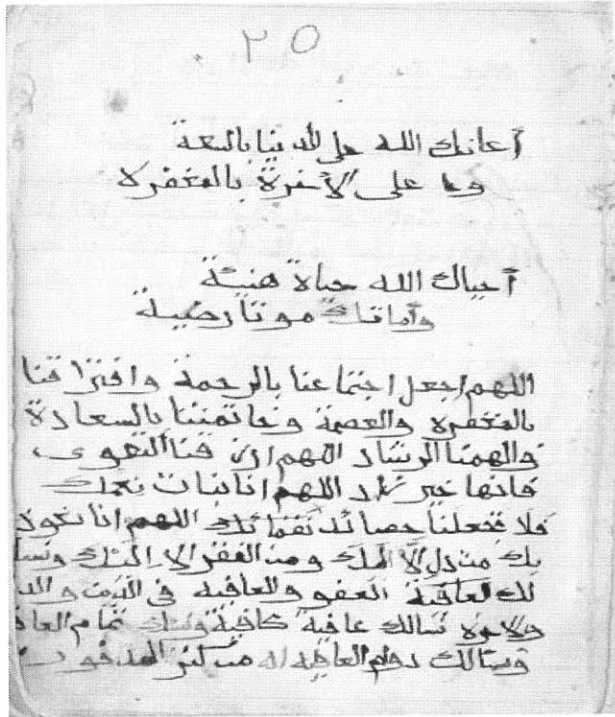 ٢٥
أعانك الله على الدنيا بالسعة
وعلى الأخرة بالمغفرة
أحياك الله حياة هنيئة
وأماتك موتا رضية
اللهم اجعل اجتماعنا بالرحمة وافترا قنا
بالمغفرة والعصمة وخاتمتنا بالسعادة
والهمنا الرشاد اللهم ارزقنا التقوى
فانها خير زاد اللهم انا نبات نعمك
فلا تجعلنا حصائد نقمائك اللهم انا نعوذ
بك من ذل الا لك ومن الفقر الا اليك ونسا
لك العافية العفو والعافية في الدين والد
والاخرة نسالك عافية كافية تمام العا
ونسالك دوام العافية